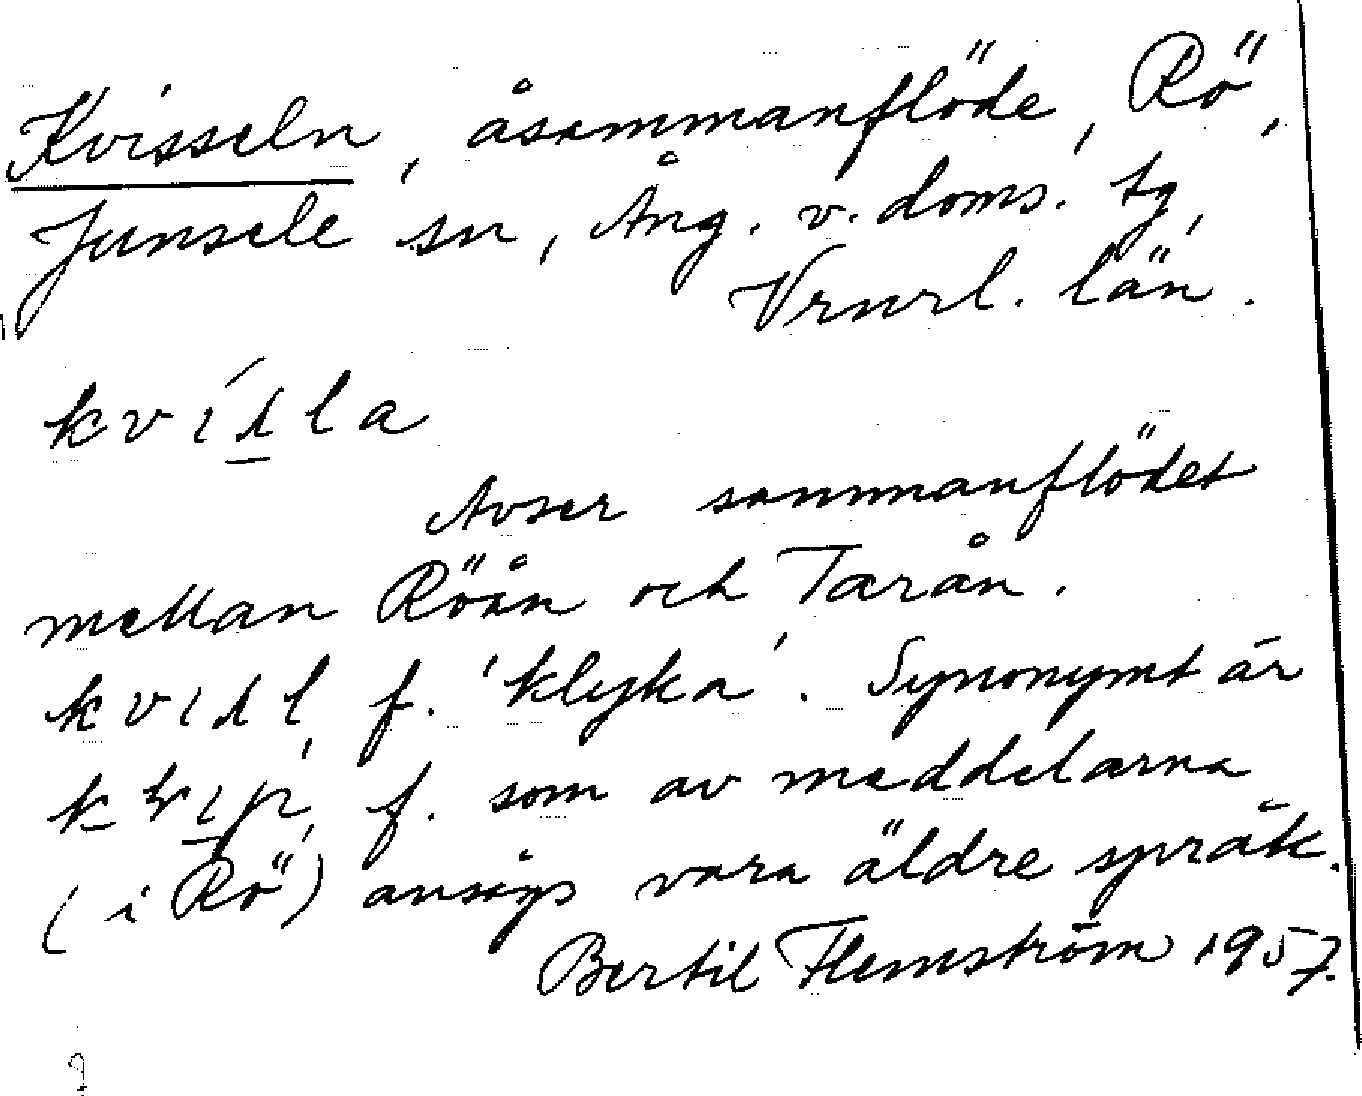 Kvisseln, åsammanflöde, Rö,
Junsele sn, Ång. v. doms. tg,
Vrnrl. län.
Avser sammanflödet
mellan Röån och Tarån.
f. 'klyka'. Synonymt är
f. som av meddelarna
(i Rö) ansågs vara äldre språk.
Bertil Flemström 1957.